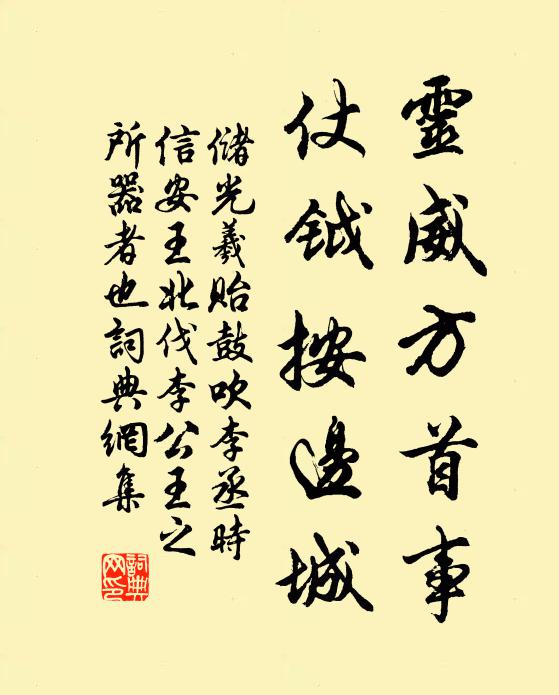 靈威方首事
仗鉞按邊城
儲光羲貽鼓吹李丞時
信安王北伐李公王之
所器者也詞典網集
詞典
网印